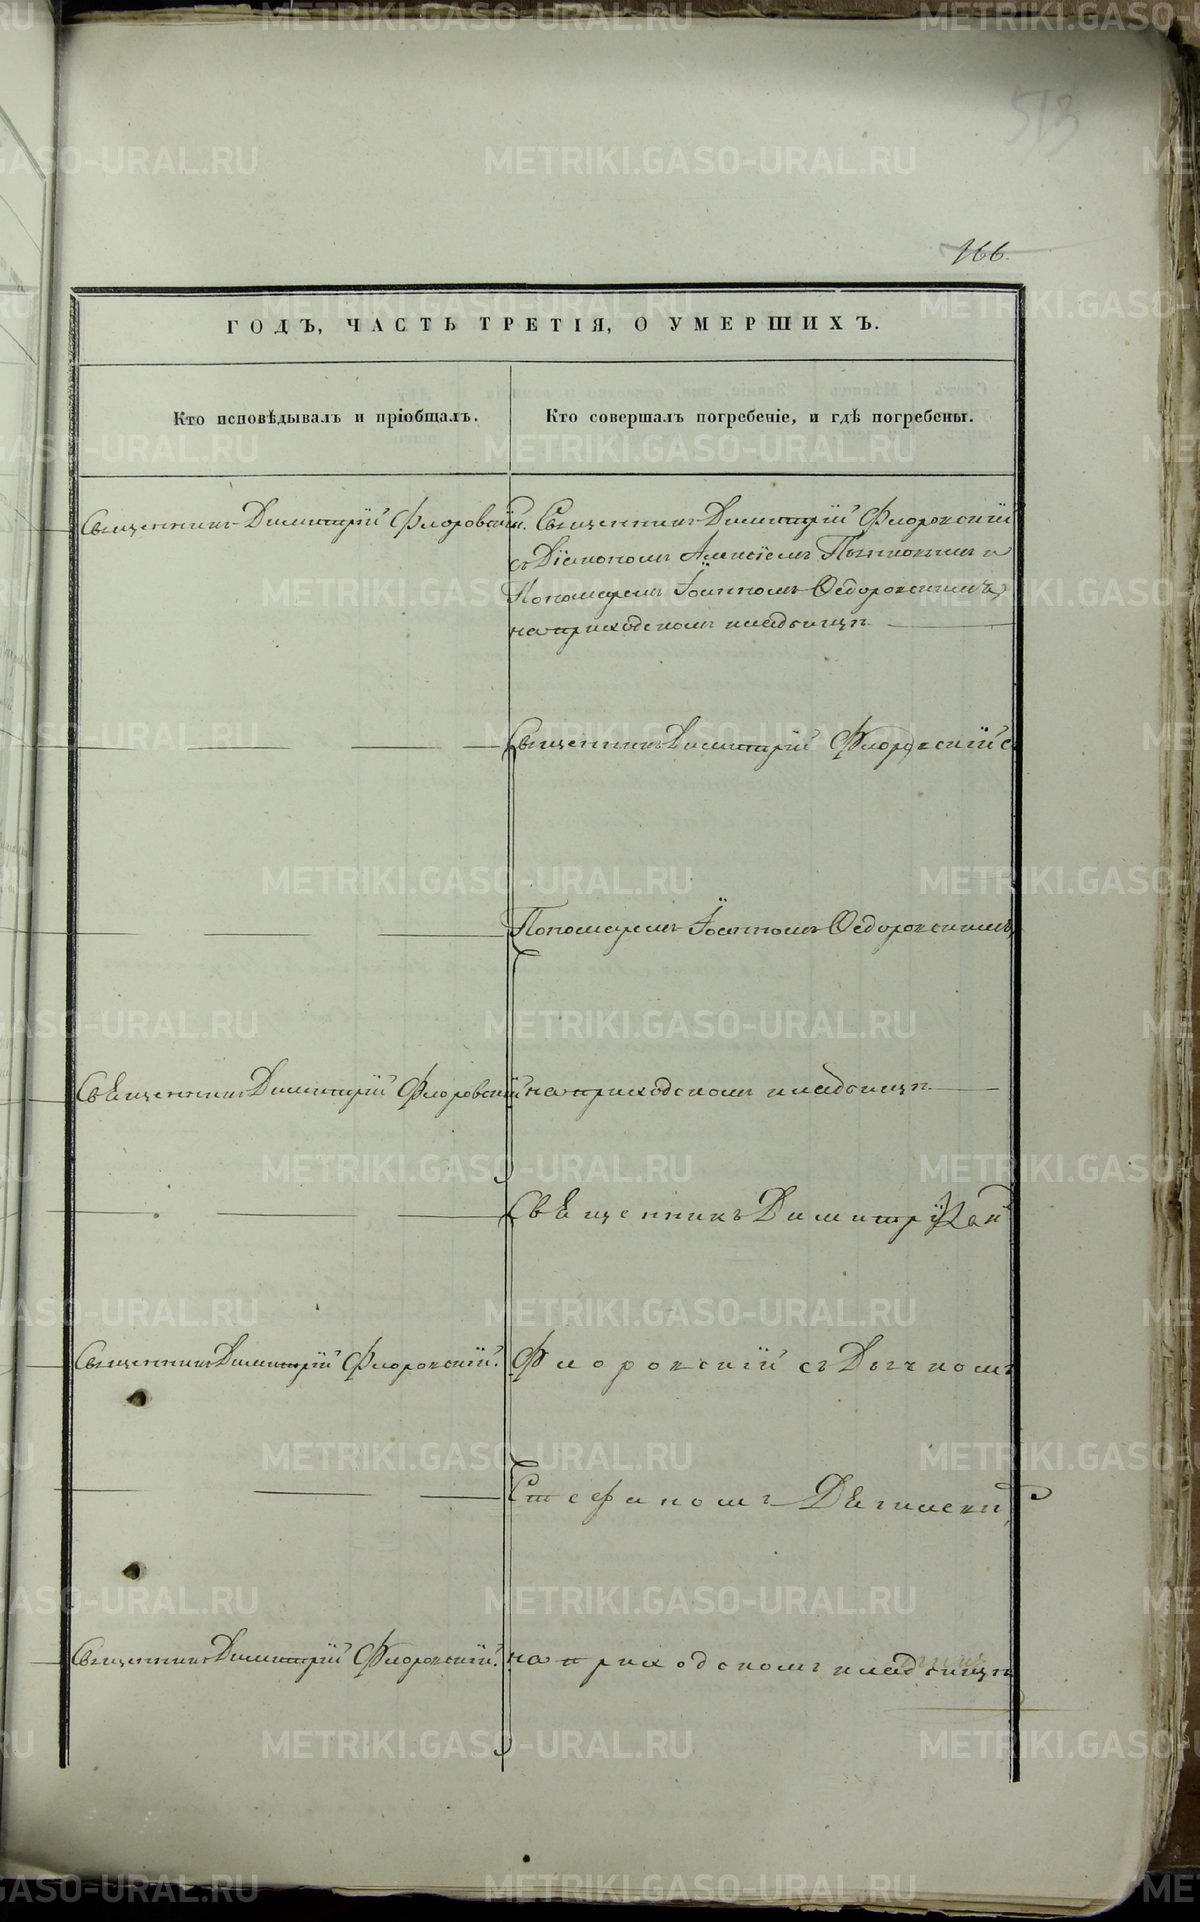 513
166.
ГОДЪ, ЧАСТЬ ТРЕТІЯ, О УМЕРШИХЪ.
Кто исповѣдывалъ и пріобщалъ.
Кто совершалъ погребеніе, и гдѣ погребены.
Священникъ Димитрій Флоровскій. Священникъ Димитрій Флоровскій
съ Діакономъ Алексіемъ и
Пономаремъ Іоанномъ Ѳедоровскимъ,
на приходскомъ кладбищѣ
Священникъ Димитрій Флоровскій съ
Пономаремъ Іоанномъ Ѳедоровскимъ,
Священникъ Димитрій Флоровскій на приходскомъ кладбищѣ.
Священникъ Димитрій
Священникъ Димитрій Флоровскій. Флоровскій съ Дьячкомъ
Стефаномъ
Священникъ Димитрій Флоровскій. на приходскомъ кладбищѣ
METRIKI.GASO-URAL.RU